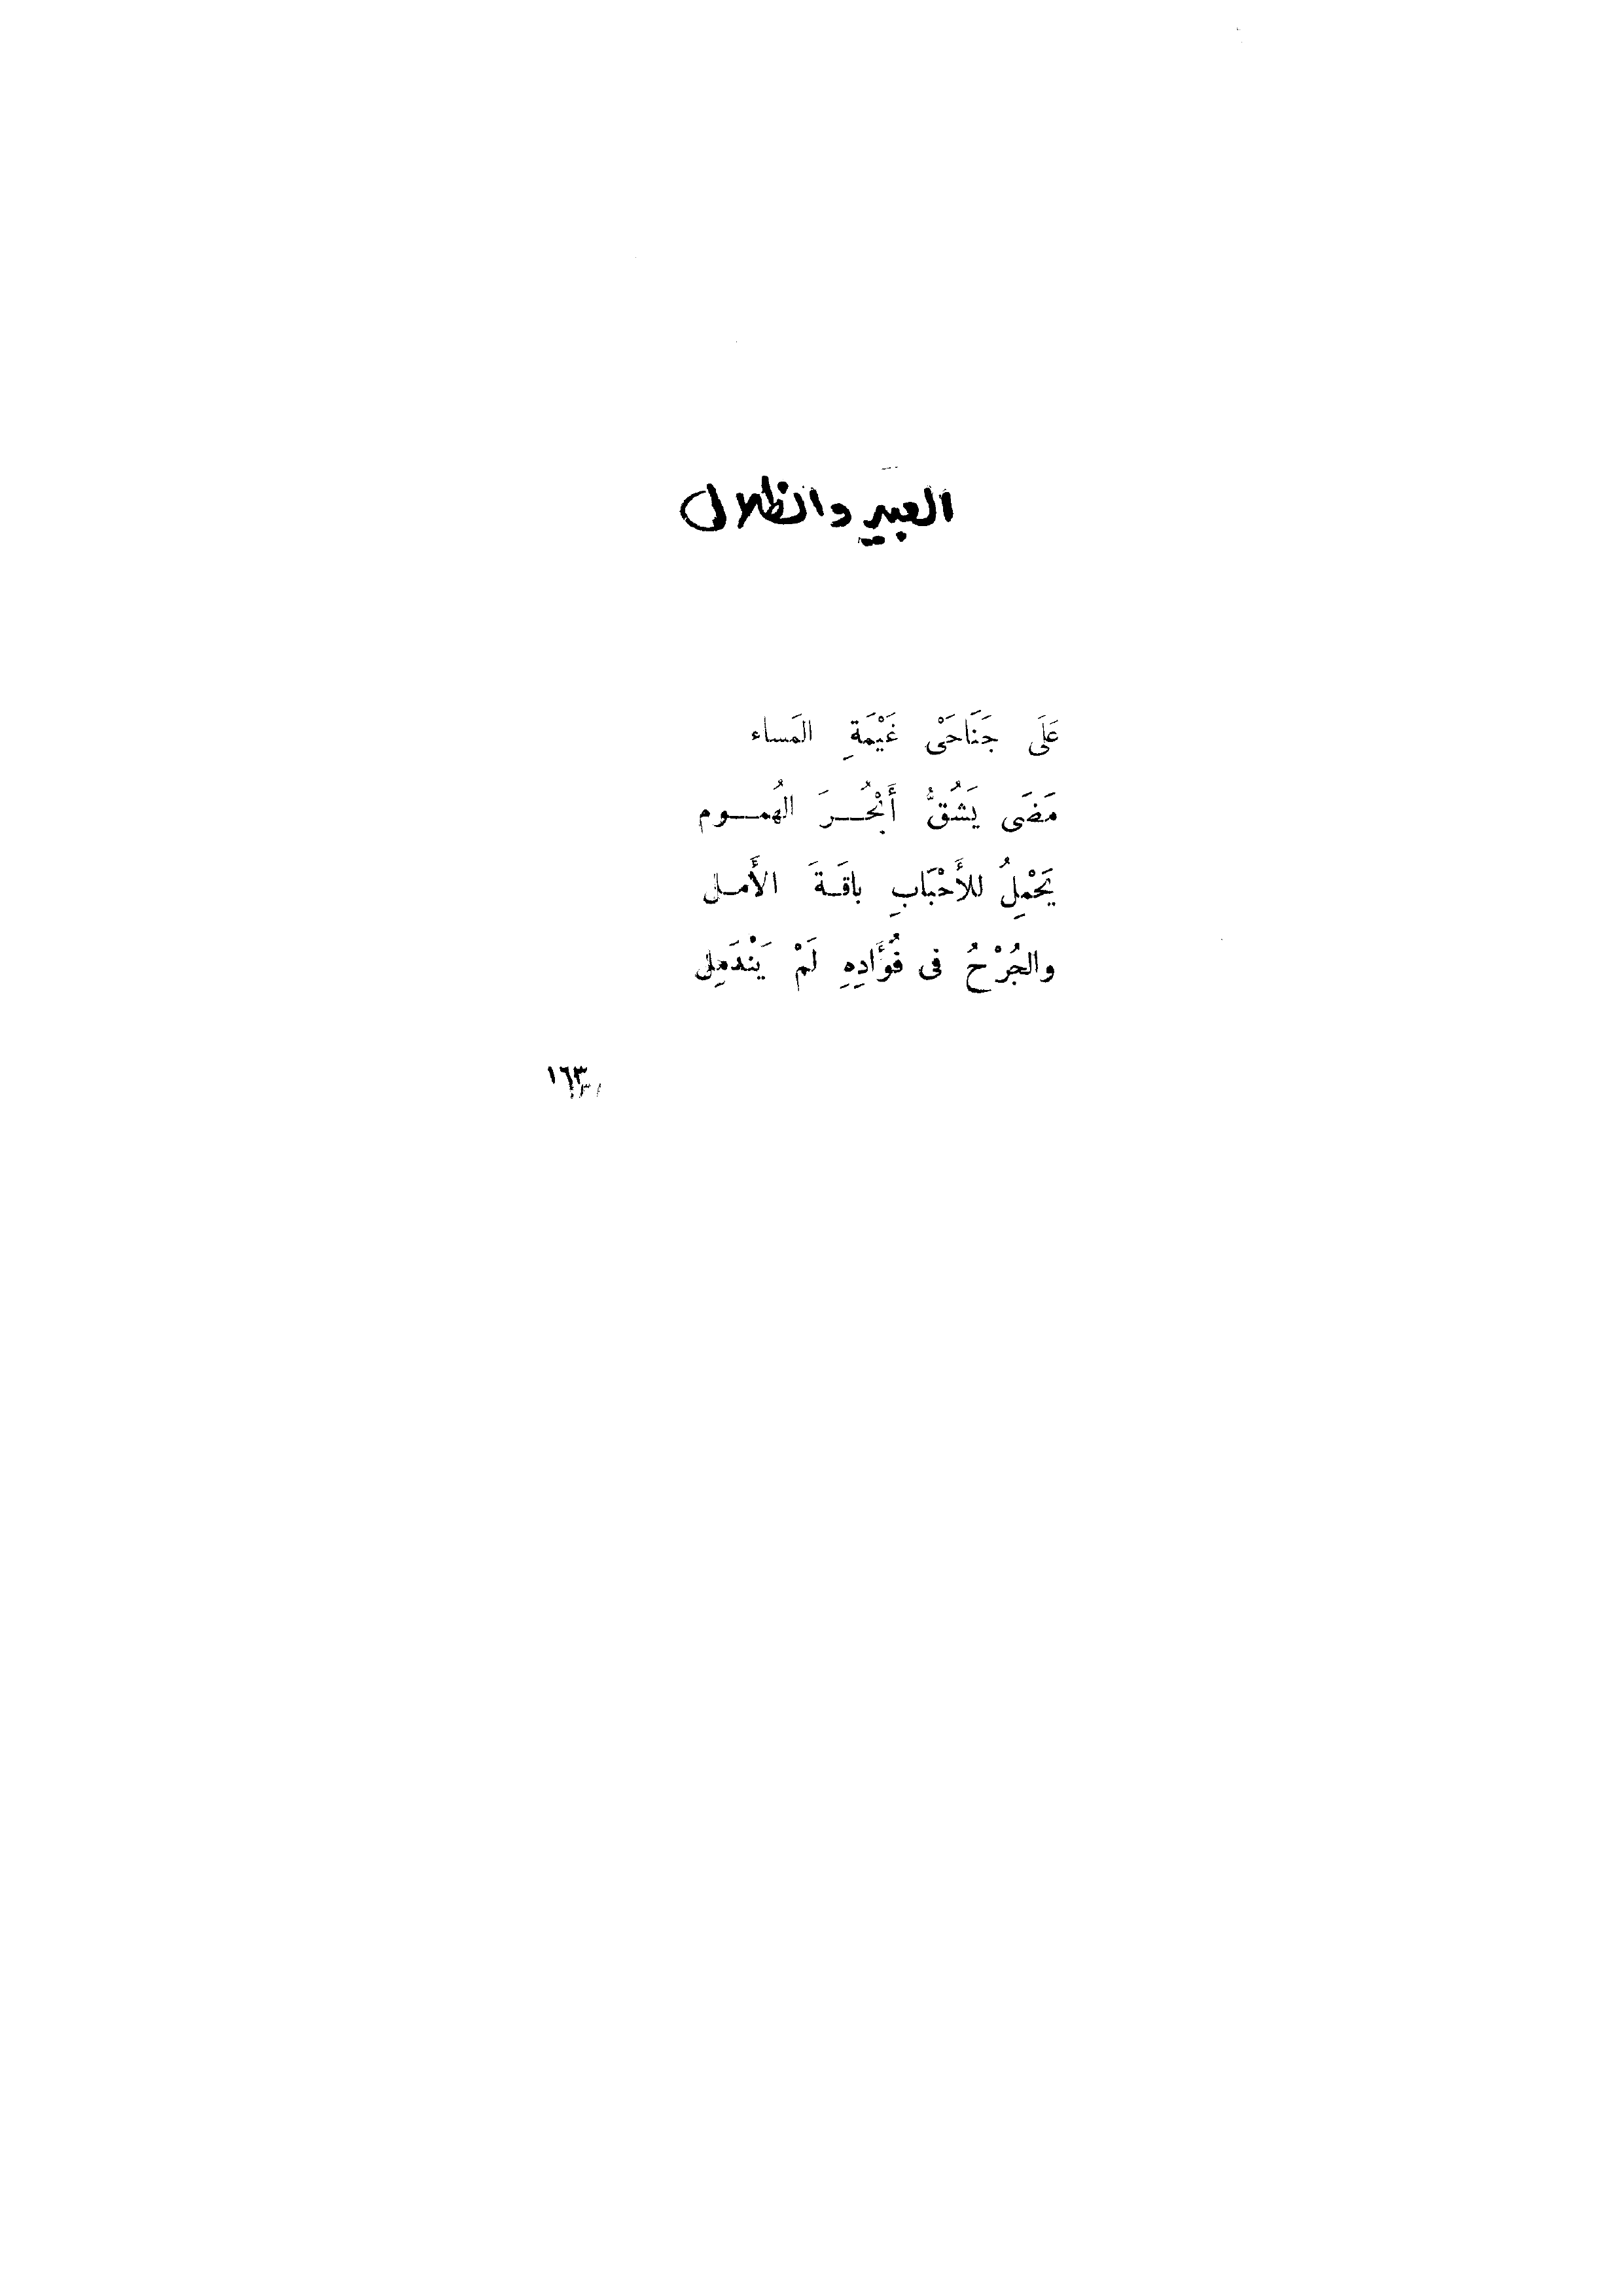 العبير والظلال
عَلَى جَنَاحَىْ غَيْمَةِ المَساء
مَضَى يَشُقُّ أَبْحُرَ الهُموم
يَحْمِلُ للأَحْبَابِ باقَةَ الأَمل
والجُرْحُ فى فُؤَادِهِ لَمْ يَنْدَمِل
١٦٣